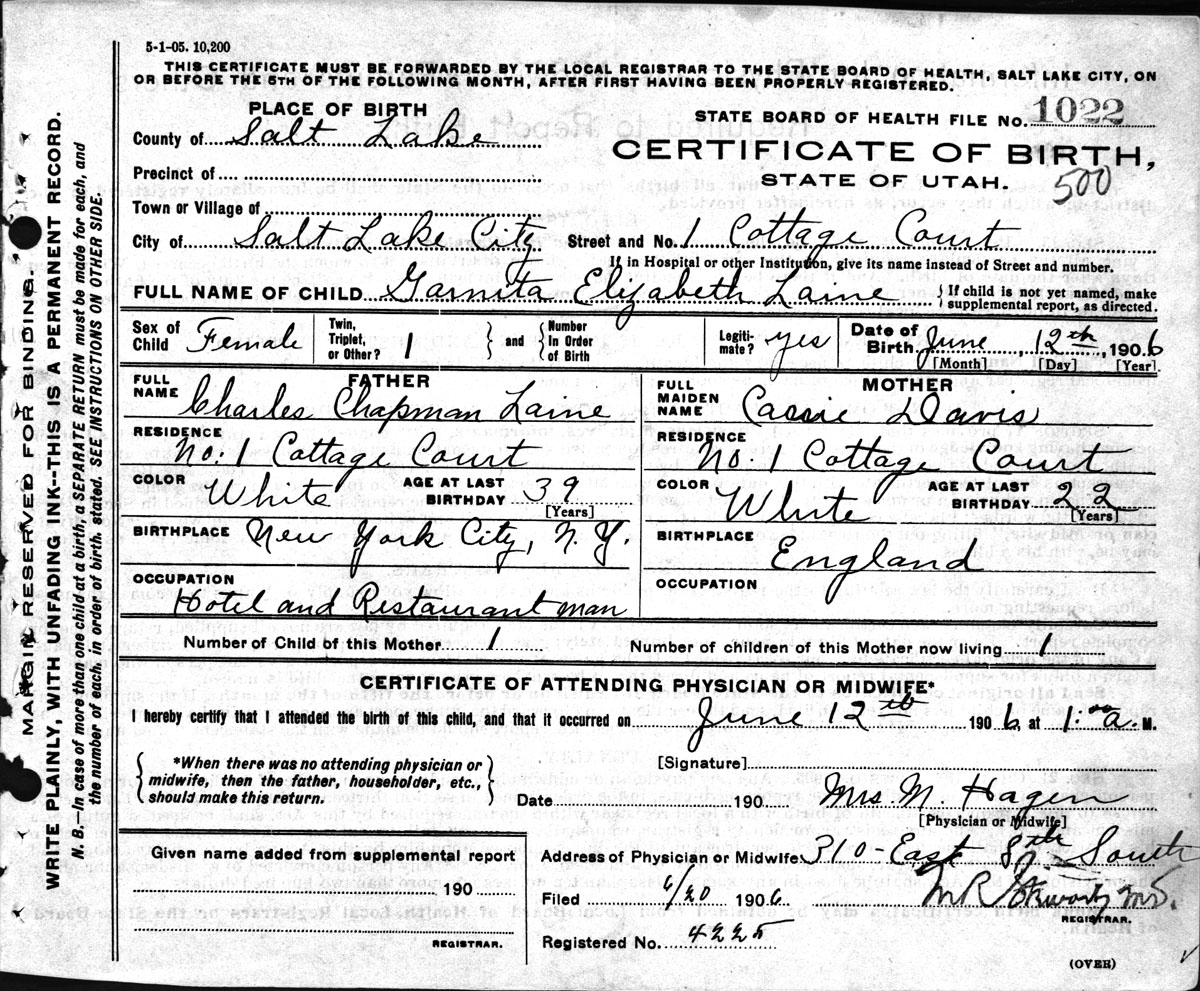 5-1-05. 10,200
THIS CERTIFICATE MUST BE FORWARDED BY THE LOCAL REGISTRAR TO THE STATE BOARD OF HEALTH, SALT LAKE CITY, ON
OR BEFORE THE 5TH OF THE FOLLOWING MONTH, AFTER FIRST HAVING BEEN PROPERLY REGISTERED.
PLACE OF BIRTH
STATE BOARD OF HEALTH FILE NO. 1022
County of Salt Lake
CERTIFICATE OF BIRTH,
Precinct of
STATE OF UTAH.
500
Town or Village of
City of Salt Lake City Street and No. 1 Cottage Court
If in Hospital or other Institution, give its name instead of Street and number.
FULL NAME OF CHILD Garnita Elizabeth Laine { If child is not yet named, make
supplemental report, as directed.
Sex of Child Female
Twin, Triplet, or Other? 1 } and { Number In Order of Birth
Legiti- mate? yes
Date of Birth June 12th, 1906
[Month] [Day] [Year].
FATHER
FULL NAME Charles Chapman Laine
RESIDENCE No. 1 Cottage Court
COLOR White AGE AT LAST BIRTHDAY 39
[Years]
BIRTHPLACE New York City, N.Y.
OCCUPATION
Hotel and Restaurant man
MOTHER
FULL MAIDEN NAME Cassie Davis
RESIDENCE No. 1 Cottage Court
COLOR White AGE AT LAST BIRTHDAY 22
[Years]
BIRTHPLACE England
OCCUPATION
Number of Child of this Mother 1 Number of children of this Mother now living 1
CERTIFICATE OF ATTENDING PHYSICIAN OR MIDWIFE*
I hereby certify that I attended the birth of this child, and that it occurred on June 12th 1906, at 1:00 a. M.
{ *When there was no attending physician or
midwife, then the father, householder, etc.,
should make this return. }
[Signature]
Date 190 Mrs. M. Hagen
[Physician or Midwife]
Given name added from supplemental report
190
REGISTRAR.
Address of Physician or Midwife 310-East 8th South
Filed 6/20 1906 M R Stewart MD.
REGISTRAR.
Registered No. 4225
(OVER)
MARGIN RESERVED FOR BINDING.
WRITE PLAINLY, WITH UNFADING INK--THIS IS A PERMANENT RECORD.
N. B.--In case of more than one child at a birth, a SEPARATE RETURN must be made for each, and
the number of each, in order of birth, stated. SEE INSTRUCTIONS ON OTHER SIDE.